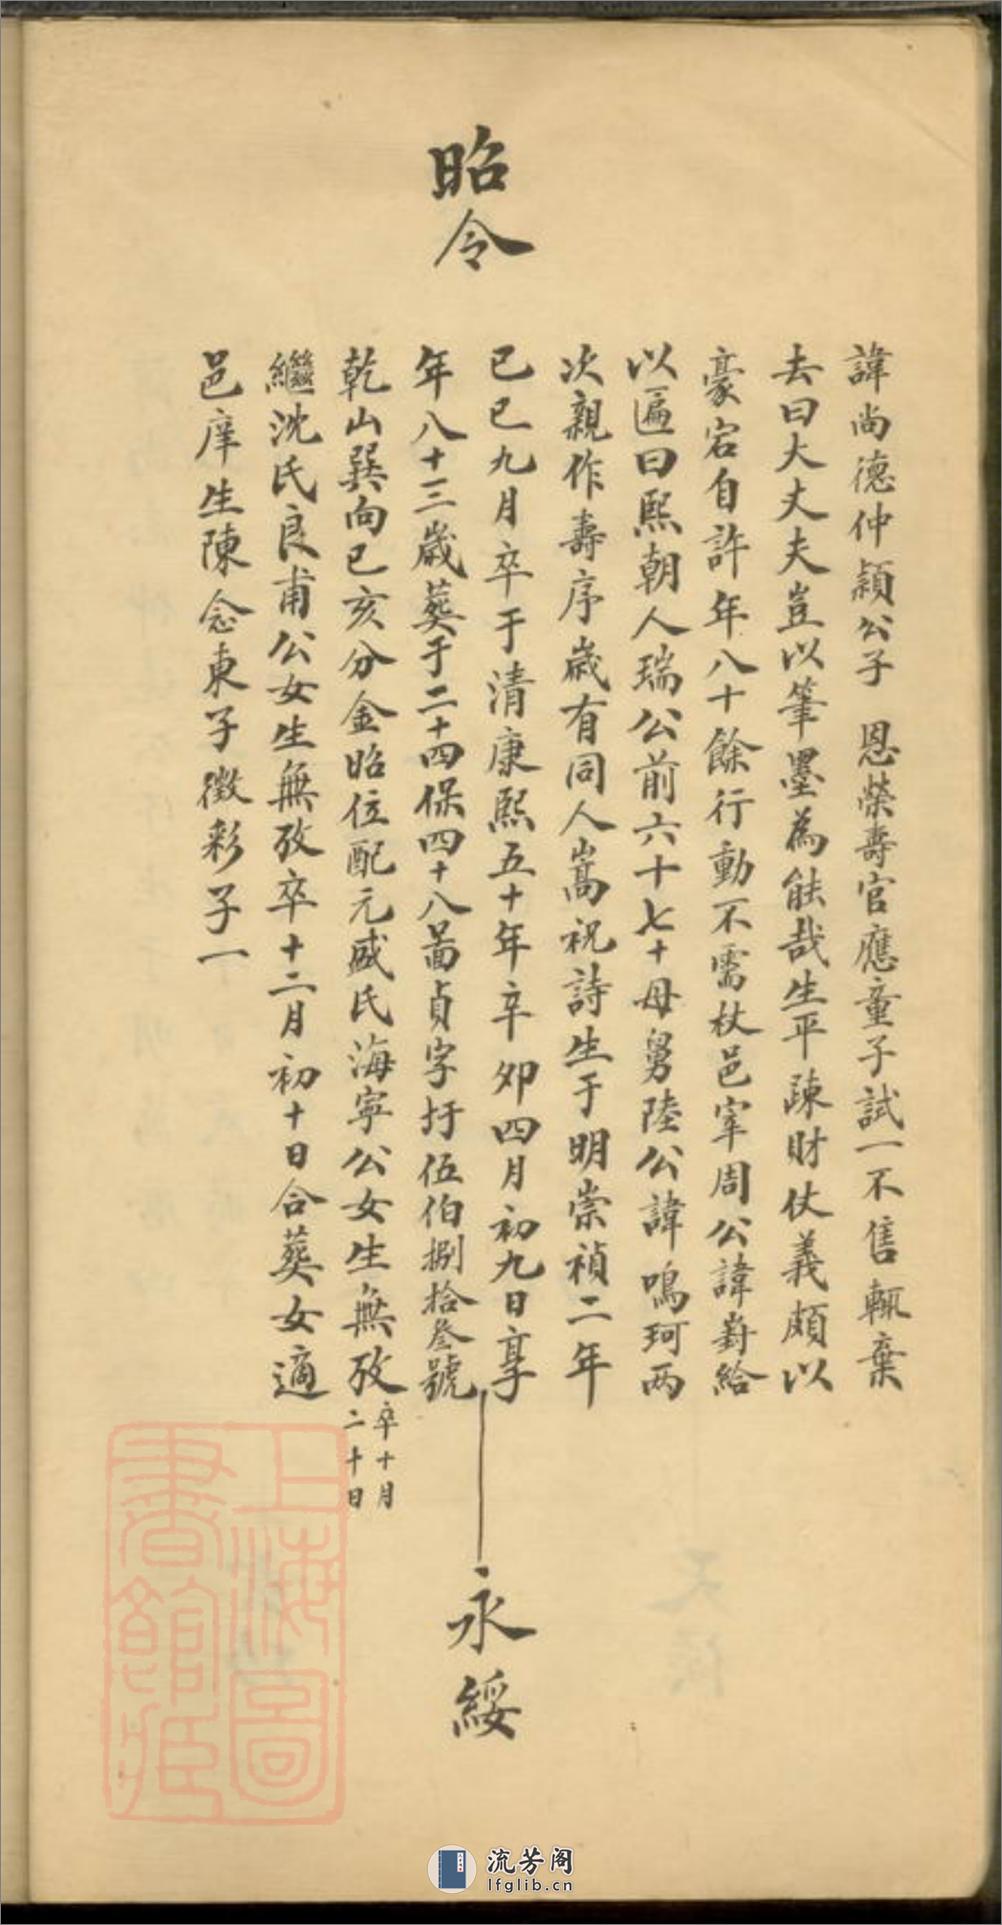 昭令
諱尚德仲穎公子 恩榮壽官應童子試一不售輒棄
去曰大丈夫豈以筆墨為能哉生平疎財仗義頗以
豪宕自許年八十餘行動不需杖邑宰周公諱對給
以匾曰熙朝人瑞公前六十七十母舅陸公諱鳴珂两
次親作壽序歲有同人嵩祝詩生于明崇禎二年
己巳九月卒于清康熙五十年辛卯四月初九日享
年八十三歲葬于二十四保四十八啚貞字圩伍伯捌拾叁號
乾山巽向己亥分金昭位配元戚氏海寧公女生無攷
卒十月
二十日
繼沈氏良甫公女生無攷卒十二月初十日合葬女適
邑庠生陳念東子徵彩子一
永綏
上海圖
書館藏
流芳阁
lfglib.cn